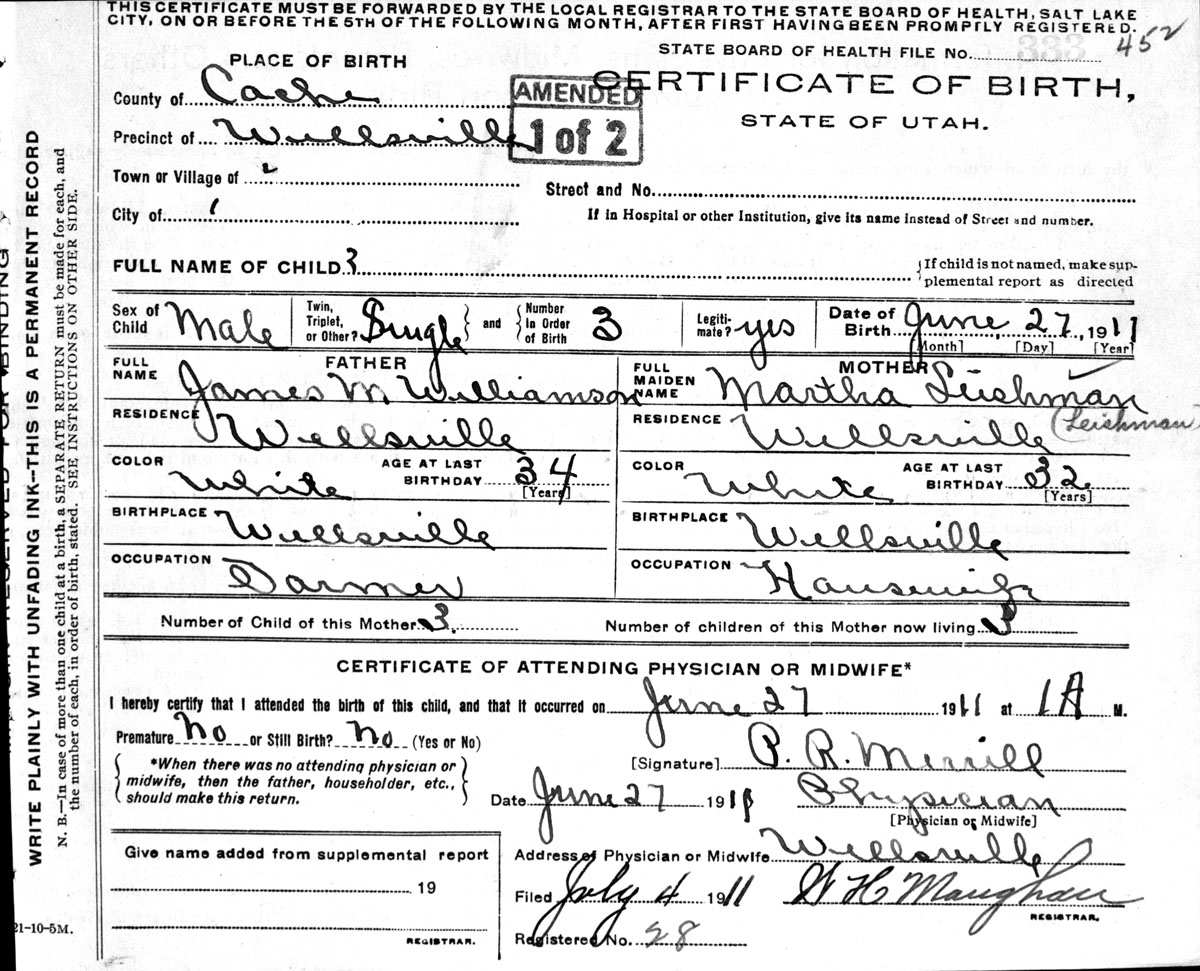 THIS CERTIFICATE MUST BE FORWARDED BY THE LOCAL REGISTRAR TO THE STATE BOARD OF HEALTH, SALT LAKE
CITY, ON OR BEFORE THE 5TH OF THE FOLLOWING MONTH, AFTER FIRST HAVING BEEN PROMPTLY REGISTERED.
STATE BOARD OF HEALTH FILE No. 452
PLACE OF BIRTH
CERTIFICATE OF BIRTH,
STATE OF UTAH.
AMENDED
1 of 2
County of Cache
Precinct of Wellsville
Town or Village of 2
Street and No.
City of 1
If in Hospital or other Institution, give its name instead of Street and number.
FULL NAME OF CHILD 3
{If child is not named, make sup-
plemental report as directed
Sex of Child Male
Twin, Triplet, or Other? Single and Number in Order of Birth 3
Legiti-mate? yes
Date of Birth June 27, 1911
[Month] [Day] [Year]
FATHER
MOTHER
FULL NAME James M Williamson
FULL MAIDEN NAME Martha Leishman
(Leishman)
RESIDENCE Wellsville
RESIDENCE Wellsville
COLOR White AGE AT LAST BIRTHDAY 34 [Years]
COLOR White AGE AT LAST BIRTHDAY 32 [Years]
BIRTHPLACE Wellsville
BIRTHPLACE Wellsville
OCCUPATION Farmer
OCCUPATION Housewife
Number of Child of this Mother 3.
Number of children of this Mother now living 3
CERTIFICATE OF ATTENDING PHYSICIAN OR MIDWIFE*
I hereby certify that I attended the birth of this child, and that it occurred on June 27 1911 at 1 A M.
Premature No or Still Birth? No (Yes or No)
*When there was no attending physician or
midwife, then the father, householder, etc.,
should make this return.
[Signature] P. R. Merrill
Date June 27 1911 Physician
[Physician or Midwife]
Give name added from supplemental report
19
REGISTRAR.
Address of Physician or Midwife Wellsville
Filed July 4 1911 W H Maughan
REGISTRAR.
Registered No. 28
21-10-5M.
WRITE PLAINLY WITH UNFADING INK—THIS IS A PERMANENT RECORD
N. B.—In case of more than one child at a birth, a SEPARATE RETURN must be made for each, and
the number of each, in order of birth, stated. SEE INSTRUCTIONS ON OTHER SIDE.